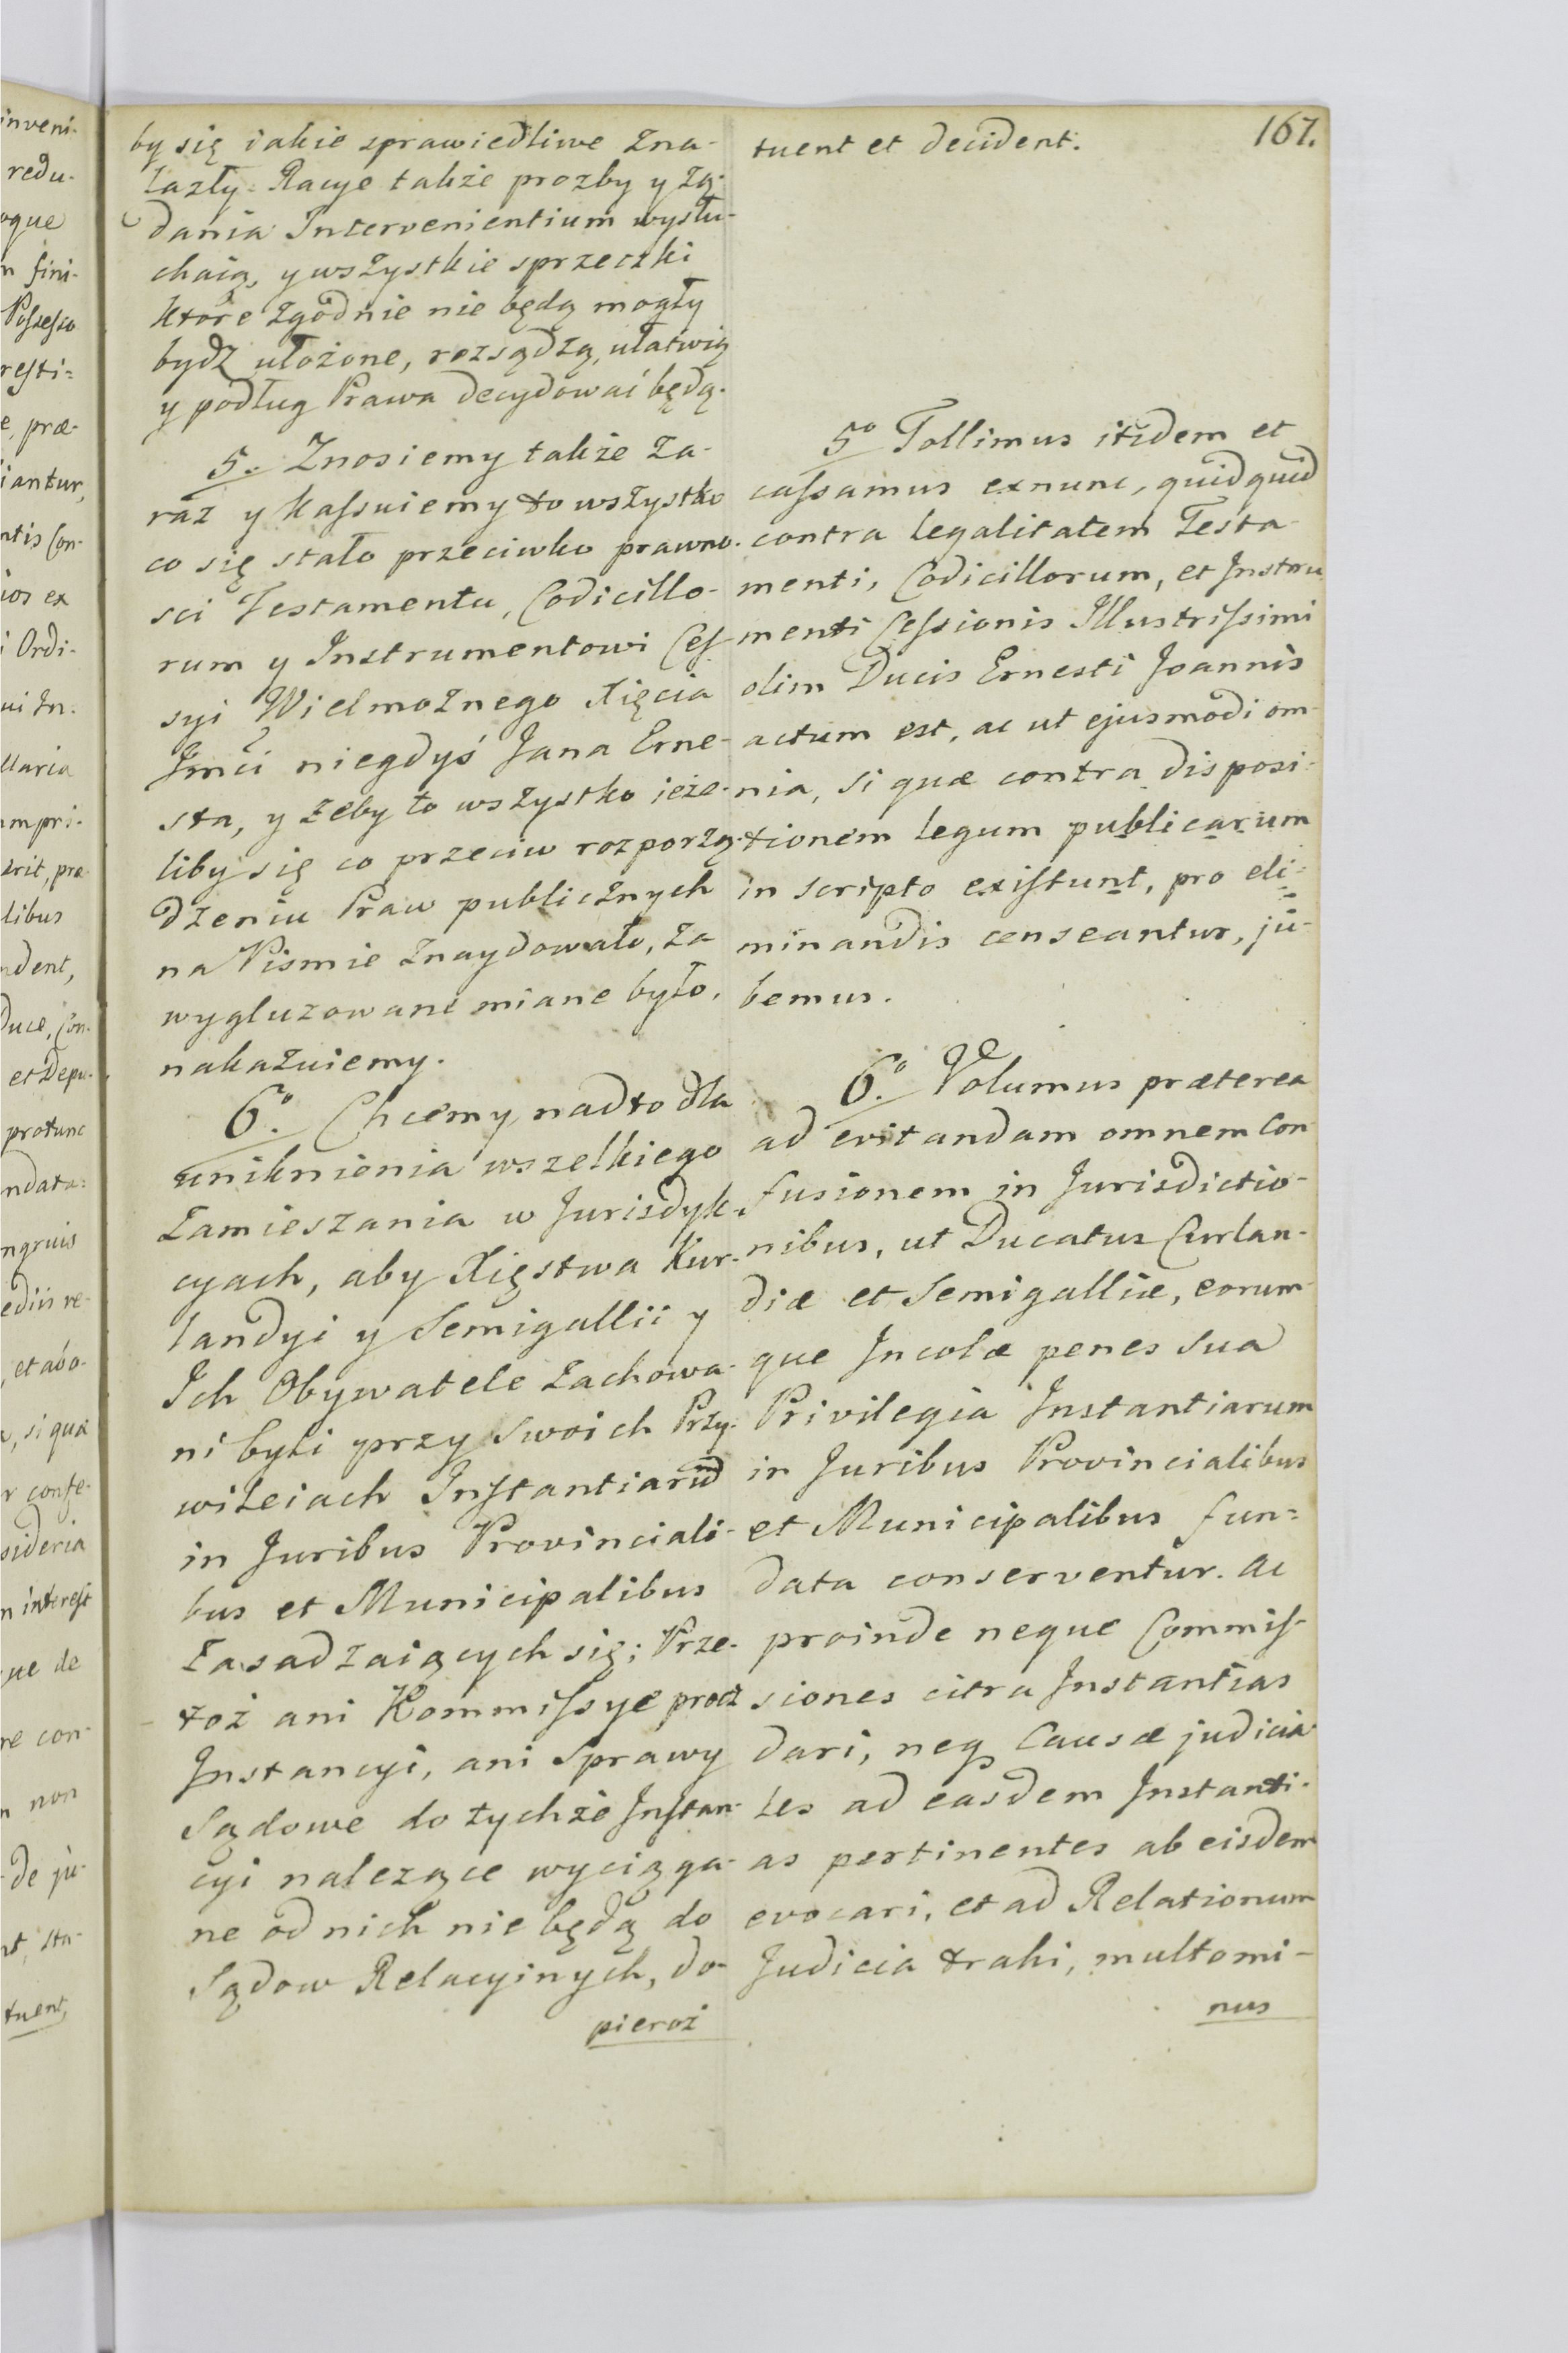 167.
by się iakie sprawiedliwe zna-
lazły Racye także prozby y żą-
dania Intervenientium wysłu-
chaią, y wszystkie sprzeczki
ktore zgodnie nie będą mogły
bydz ułożone, rozsądzą, ułatwią
y podług Prawa decydować będą.
5. Znosiemy także za-
raz y kaſsuiemy to wszystko
co się stało przeciwko prawno-
sci Testamentu, Codicillo-
rum y Instrumentowi Ceſ-
syi Wielmożnego Xięcia
Jmci niegdyś Jana Erne-
sta, y żeby to wszystko ieże-
liby się co przeciw rozporzą-
dzeniu Praw publicznych
na Pismie znaydowało, za
wygluzowane miane było,
nakazuiemy.
6º. Chcemy nadto dla
uniknienia wszelkiego
zamieszania w Jurisdyk-
cyach, aby Xięstwa Kur-
landyi y Semigallii y
Ich Obywatele zachowa-
ni byli przy swoich Przy-
wileiach Inſtantiarum
in Juribus Provinciali-
bus et Municipalibus
zasadzaiących się; Prze-
toż ani Kommiſsye procz
Instancyi, ani Sprawy
Sądowe do tychże Inſtan-
cyi nalezące wyciąga-
ne od nich nie będą do
Sądow Relacyinych, do-
pieroż
tuent et decident.
5º Tollimus itidem et
caſsamus exnunc, quidquid
contra legalitatem Testa-
menti, Codicillorum, et Instru
menti Ceſsionis Illustriſsimi
olim Ducis Ernesti Joannis
actum est, ac ut ejusmodi om-
nia, si quæ contra disposi-
tionem legum publicarum
in scripto exiſtunt, pro eli-
minandis censeantur, ju-
bemus.
6º. Volumus præterea
ad evitandam omnem Con
fusionem in Jurisdictio-
nibus, ut Ducatus Curlan-
diæ et Semigalliæ, eorum-
que Incolæ penes sua
Privilegia Instantiarum
in Juribus Provincialibus
et Municipalibus fun=
data conserventur. Ac
proinde neque Commiſ-
siones citra Instantias
dari, neq Causæ judicia-
les ad easdem Instanti-
as pertinentes ab eisdem
evocari, et ad Relationum
Judicia trahi, multomi-
nus
inveni-
redu-
oque
n fini-
Poſseſso
reſti=
e, præ-
iantur,
ntis Con-
ios ex
i Ordi-
llaria
mpri-
erit, præ-
libus
ndent,
Duce, Con-
et Depu-
protunc
ndata=
ngruis
ediis re-
, et abo-
, si quæ
r confe-
sideria
n intereſt
ue de
re con-
n non
de ju-
nt, sta-
tuent,